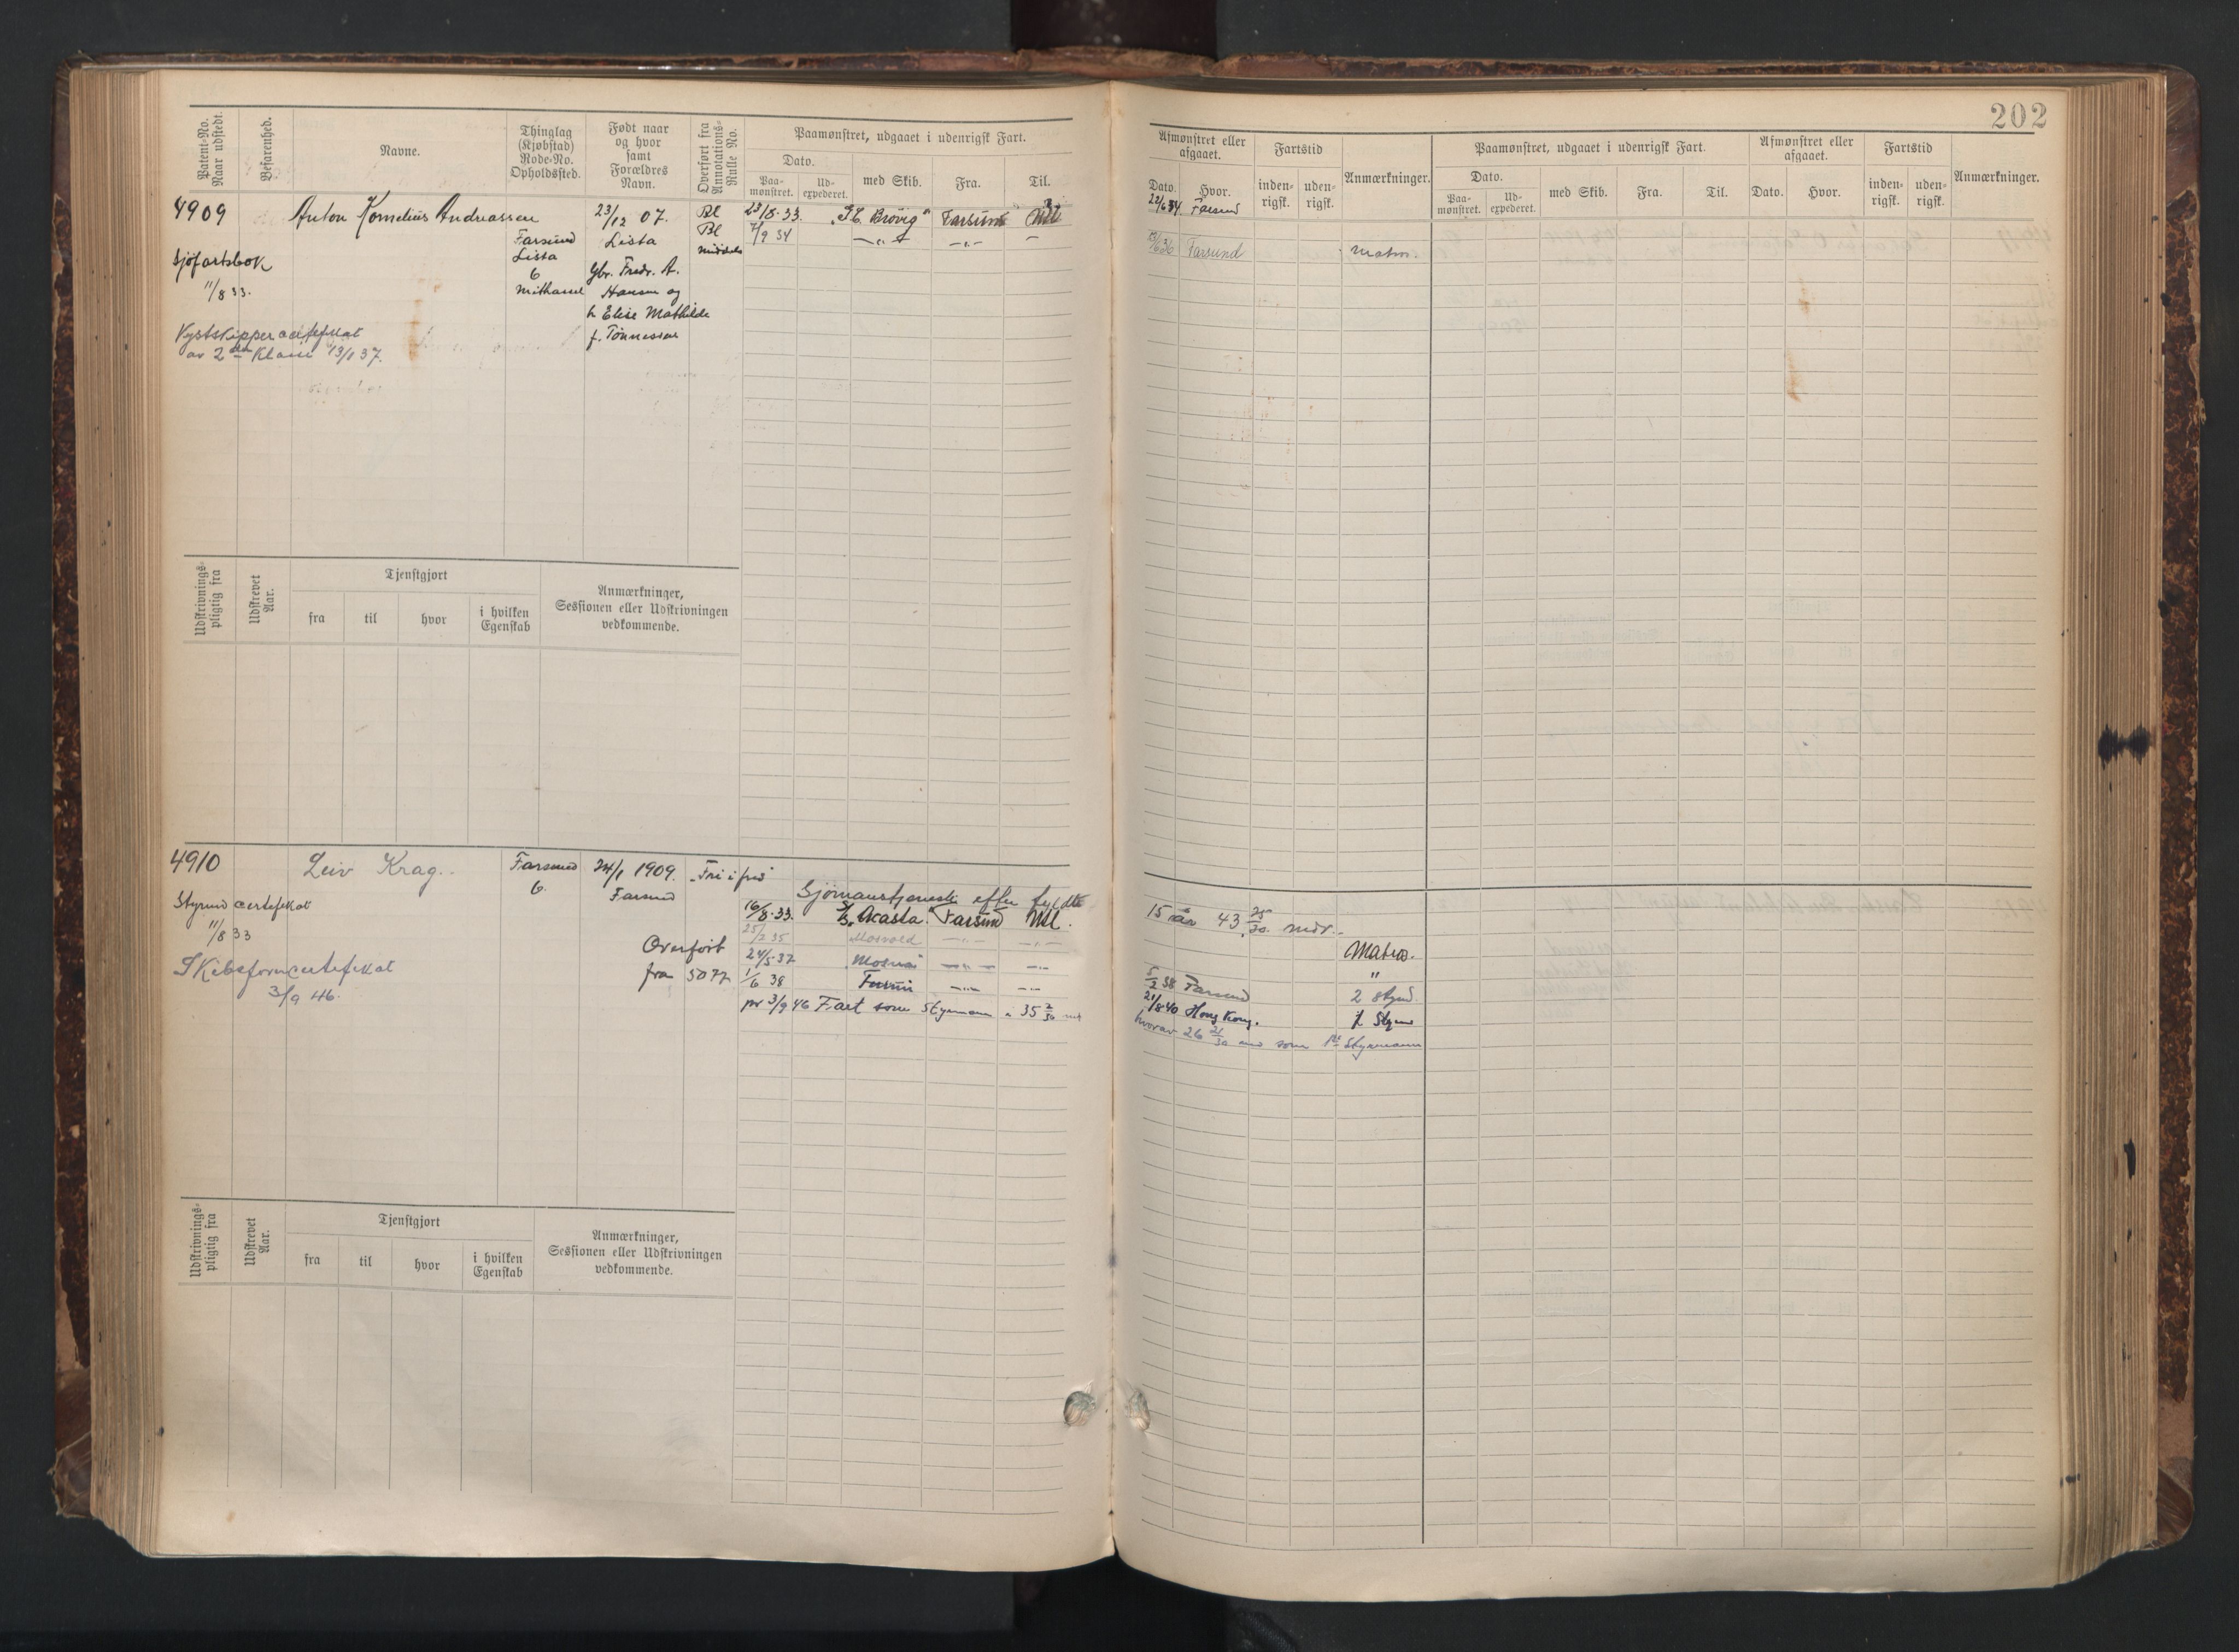 202
Patent-No. Naar udstedt.
Befarenhed.
Navne.
Thinglag (Kjøbstad) Rode-No. Opholdssted.
Født naar og hvor samt Forældres Navn.
Overført fra Annotations-Rulle No.
Paamønstret, udgaaet i udenrigsk Fart.
Dato.
Paa-mønstret.
Ud-expederet.
med Skib.
Fra.
Til.
Afmønstret eller afgaaet.
Dato.
Hvor.
Fartstid
inden-rigsk.
uden-rigsk.
Anmærkninger.
Paamønstret, udgaaet i udenrigsk Fart.
Dato.
Paa-mønstret.
Ud-expederet.
med Skib.
Fra.
Til.
Afmønstret eller afgaaet.
Dato.
Hvor.
Fartstid
inden-rigsk.
uden-rigsk.
Anmærkninger.
4909 Anton Kornelius Andreassen 23/12 07. Bl 23/8-33. "G.C. Brøvig" Farsund Utl 22/6 34 Farsund
Farsund Lista Bl 7/9 34 —"— —"— — Farsund Matros.
Sjøfartsbok Lista
11/8 33. 6 Gbr. Fredr. A.
Hansen og
h. Elise Mathilde
f. Tønnessen
Kystskippercertifikat
av 2den Klasse 13/1 37.
Udskrivnings-pligtig fra
Udskrevet Aar.
Tjenstgjort
fra
til
hvor
i hvilken Egenskab
Anmærkninger,
Sessionen eller Udskrivningen
vedkommende.
4910 Leiv Krag. Farsund 24/1 1909. "Fri i fred"
6. Farsund
Sjømanstjeneste efter fyldte 15 år 43 25/30 mdr.
Styrmd certefikat 16/8-33. "Acasta" Farsund Utl. Matros.
11/8 33 25/2 35 Mosvold —"— —"— "
Overført 24/5 37 —"— —"— 5/2 38 Farsund 2 Styrmd.
fra 5077 1/6 38 —"— —"— 21/8 40 Hong Kong. Styrm
Skibsførercertefikat
3/9 46.
pr 3/9 46 Fart som Styrmann 35 2/30 hvorav 26 21/30 som 1ste Styrmann
Udskrivnings-pligtig fra
Udskrevet Aar.
Tjenstgjort
fra
til
hvor
i hvilken Egenskab
Anmærkninger,
Sessionen eller Udskrivningen
vedkommende.